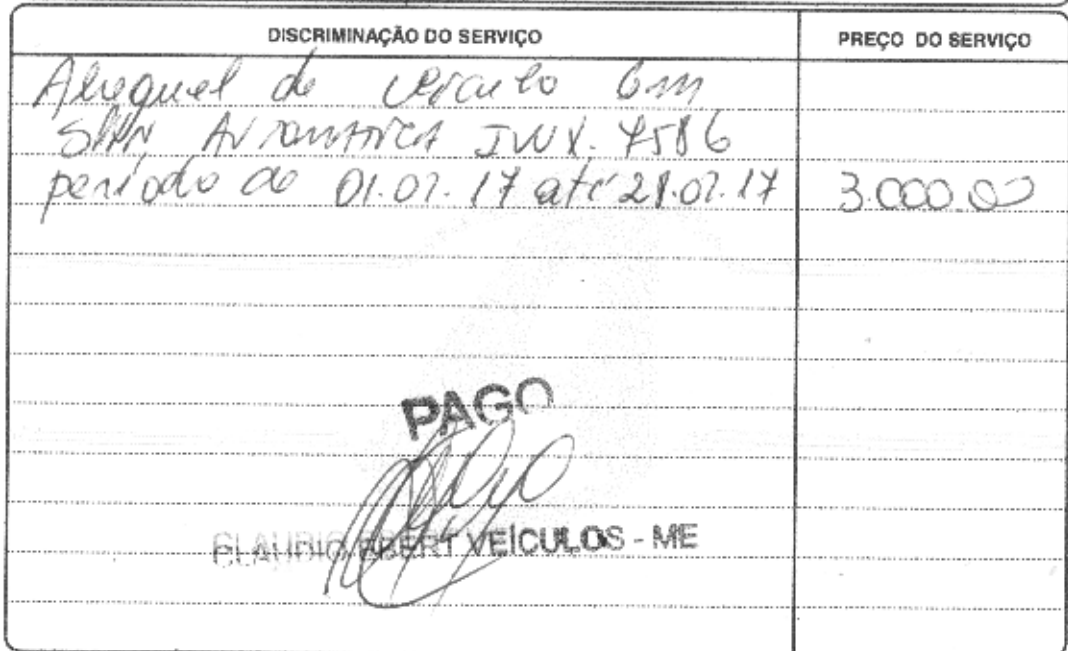 DISCRIMINAÇÃO DO SERVIÇO PREÇO DO SERVIÇO
Aluguel de veículo GM
SPIN AUTOMATICA IWX. 7586
período de 01.07.17 até 28.07.17 3.000.00
PAGO
CLAUDIO EBERT VEÍCULOS - ME